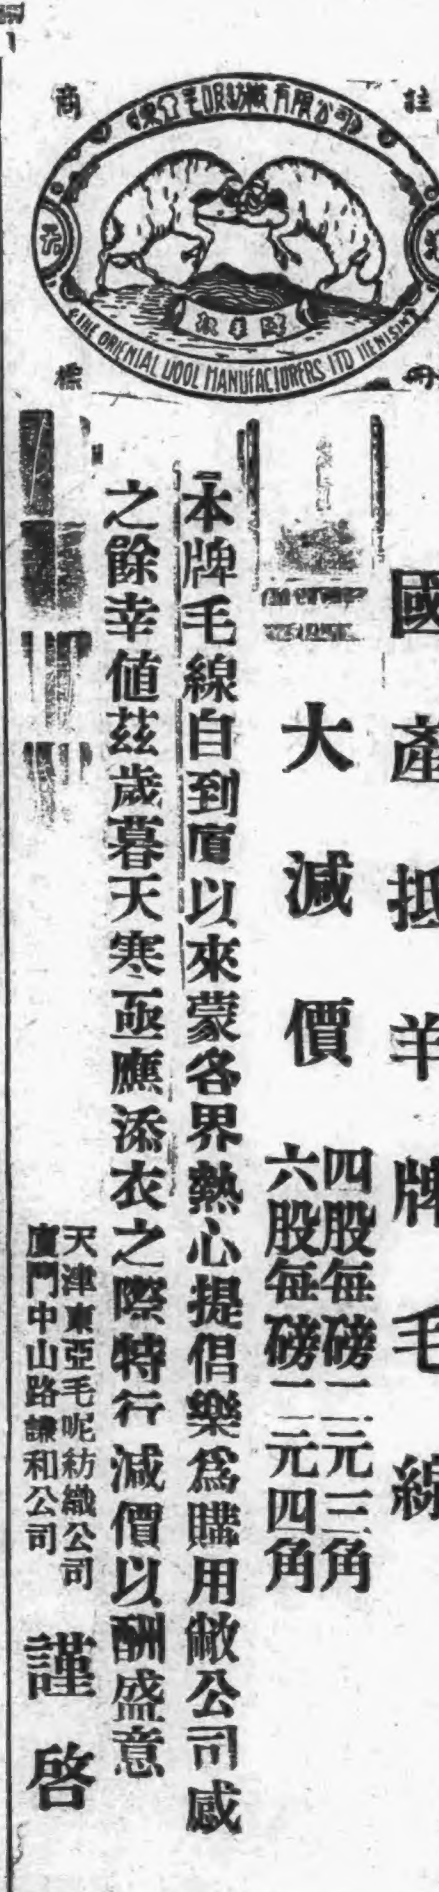 東亞毛呢紡織有限公司
THE ORIENTAL WOOL MANUFACTURERS LTD TIENTSIN
註冊
商標
國產抵羊牌毛線
大減價
四股每磅二元三角
六股每磅二元四角
本牌毛線自到厦以來蒙各界熱心提倡樂爲購用敝公司感
之餘幸値茲歲暮天寒亟應添衣之際特行減價以酬盛意
天津東亞毛呢紡織公司
廈門中山路謙和公司
謹啓